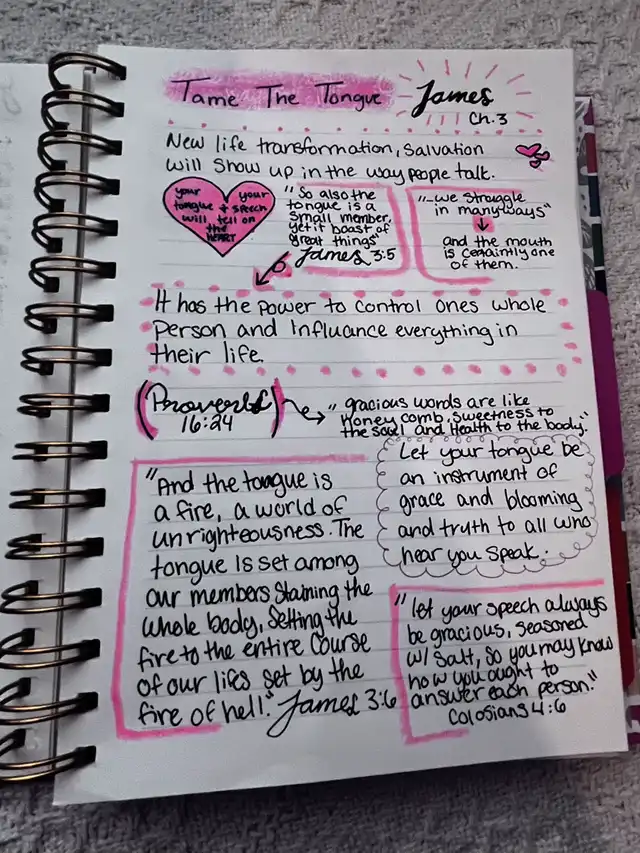 Tame The Tongue
James
Ch. 3
New life transformation, Salvation
will Show up in the way people talk.
your your
tongue + speech
will tell on
the
HEART
"So also the
tongue is a
small member,
yet it boast of
great things"
James 3:5
"...we struggle
in many ways"
and the mouth
is certaintly one
of them.
It has the power to control ones whole
person and Influance everything in
their life.
(Proverbs
16:24)
"gracious words are like
Honey comb, sweetness to
the soul and Health to the body."
Let your tongue be
an instrument of
grace and blooming
and truth to all who
hear you speak.
"And the tongue is
a fire, a world of
unrighteousness. The
tongue is set among
our members staining the
whole body, Setting the
fire to the entire Course
of our lifes set by the
fire of hell." James 3:6
"let your speech always
be gracious, seasoned
w/ Salt, so you may know
how you ought to
answer each person."
Colosians 4:6